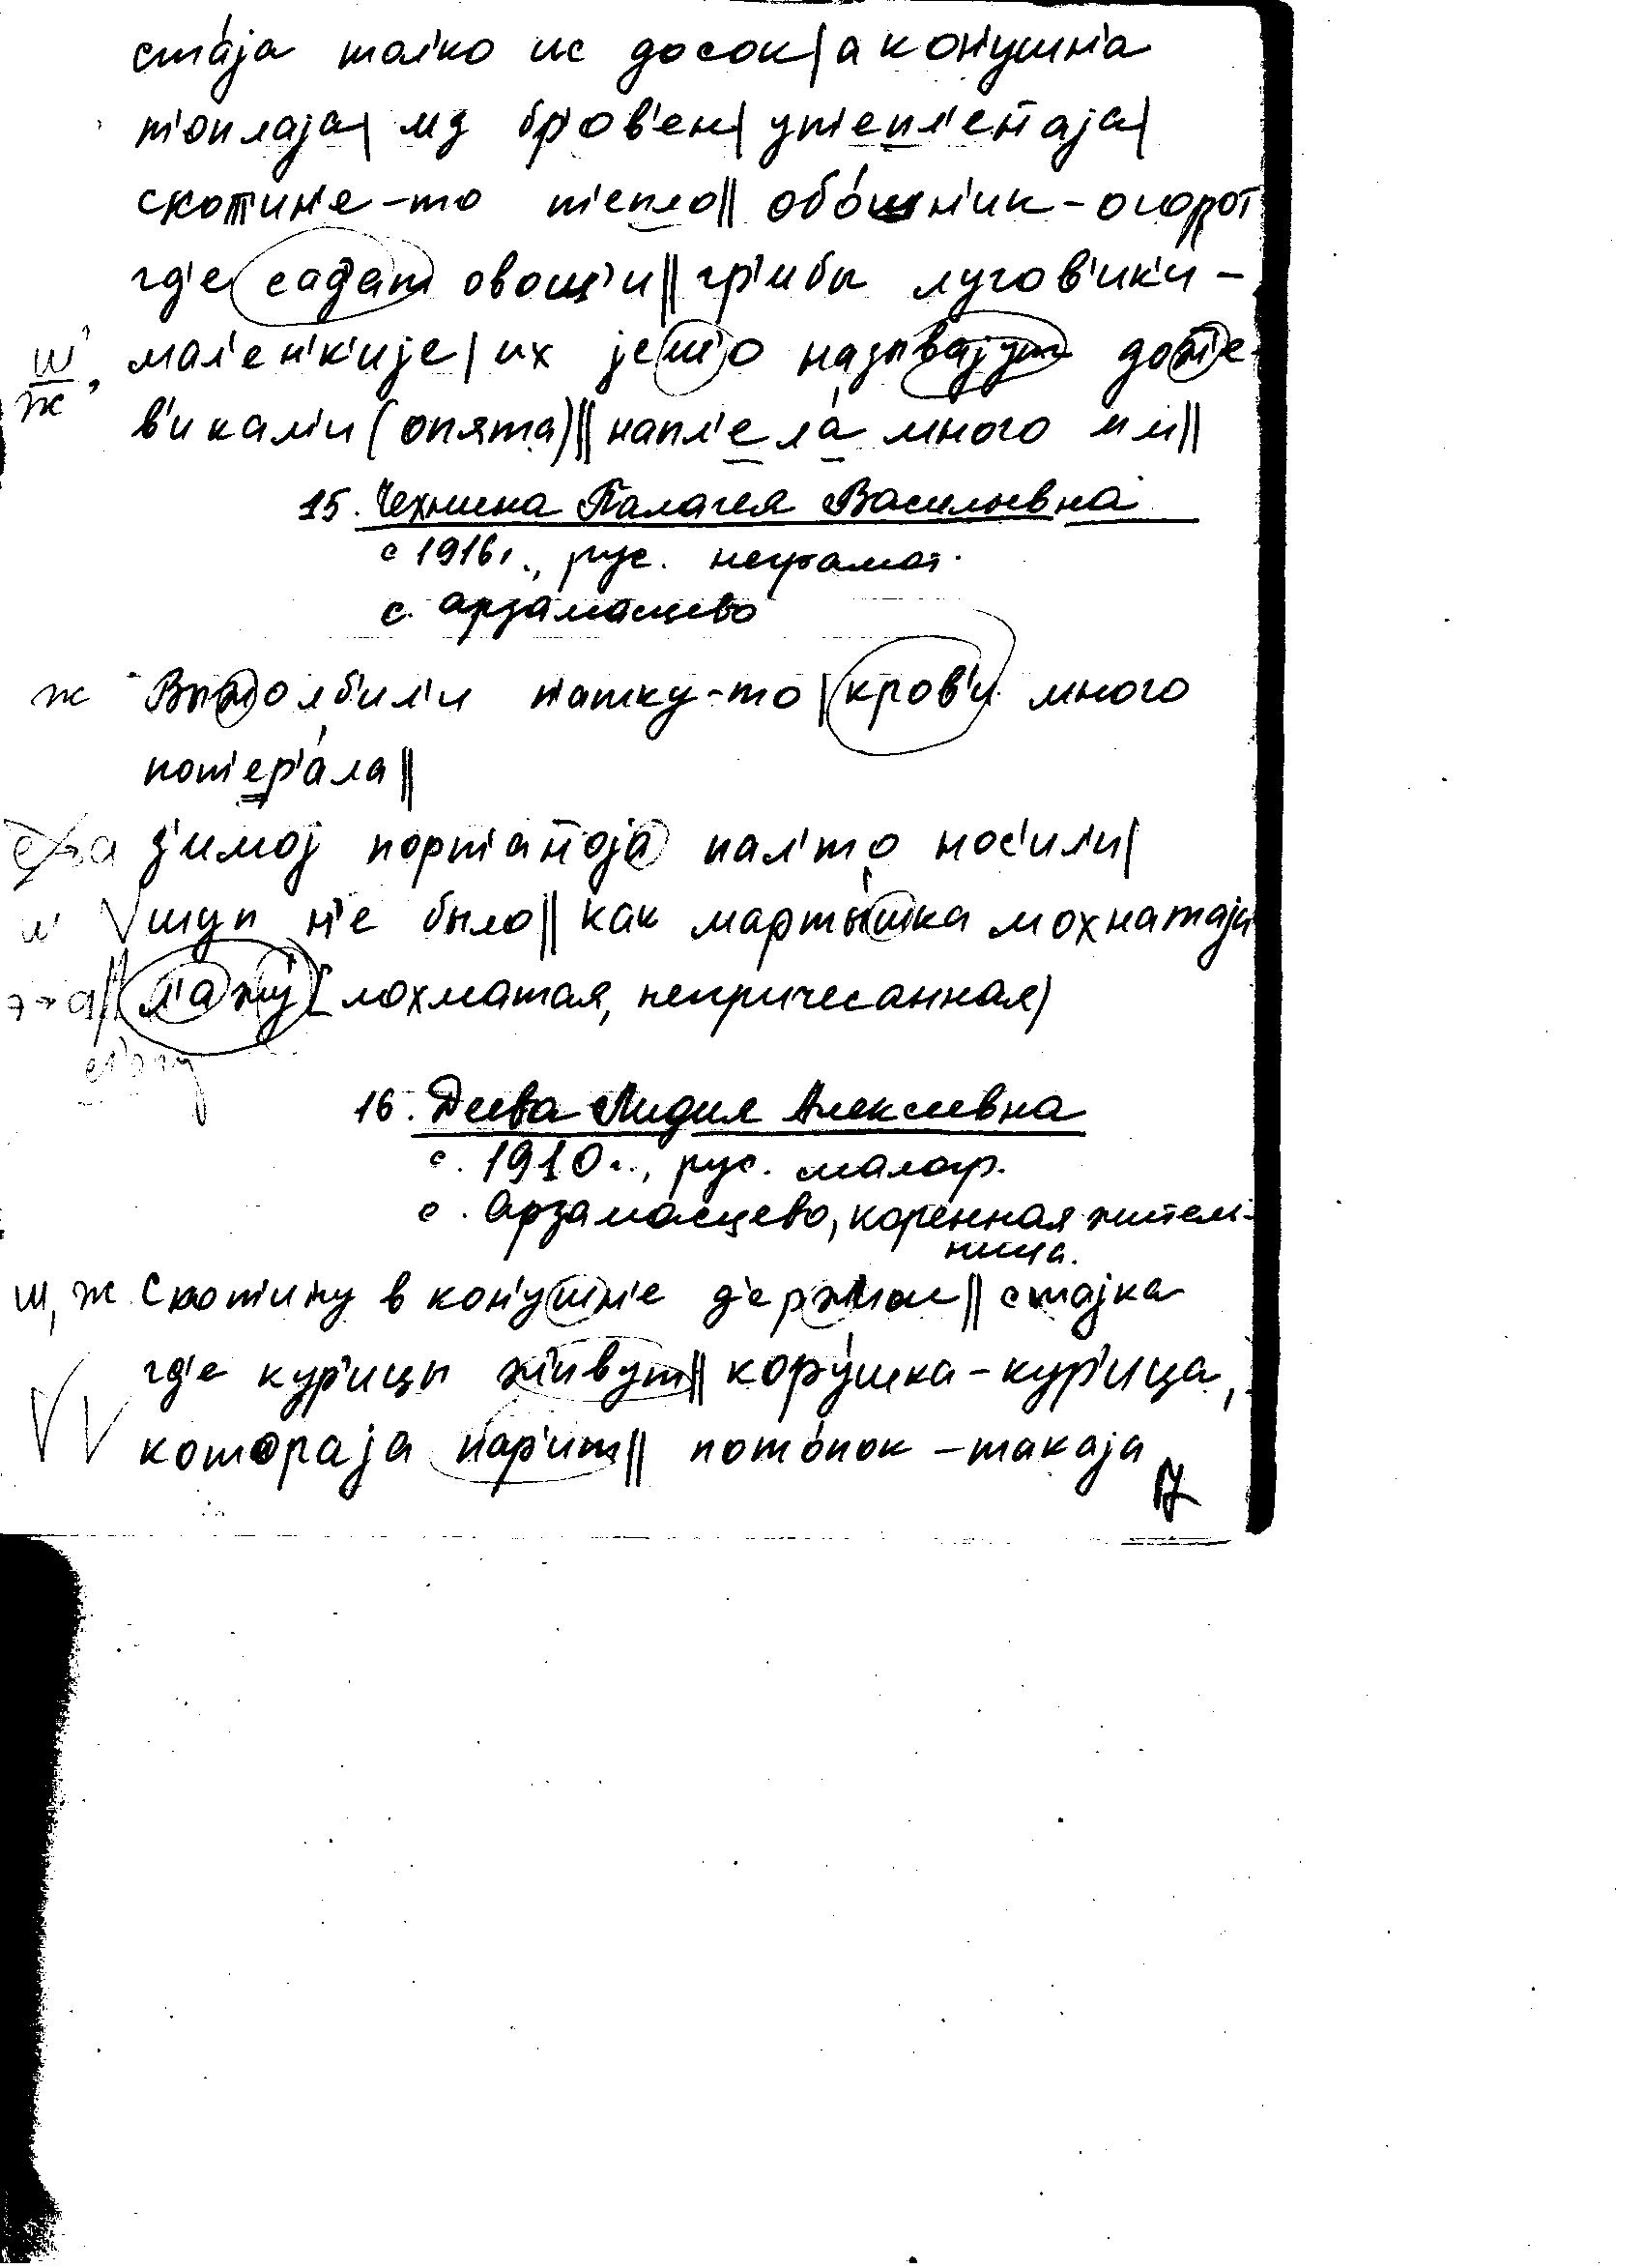 ста́jа тол'ко ис досок| а кон'ушн'а
т'оплаjа| из бр'ов'ен| ут'епл'ен̄аjа|
скот'ин'е-то т'епло|| обо́шн'ик - огорот
гд'е сад'ат овощ'и|| гр'ибы лугов'ик'и -
мал'ен'к'иjе| их jеш'о назывваjут
в'икам'и (опята)|| напл'ела́ много им||
15. Палагея Васильевна
с 1916 г., рус. неграмот.
с. Арзамасцево
ж
т'атку-то| кров'и много
пот'ер'а́ла||
з'имоj порт'ан̄оjа пал'то нос'ил'и|
шуп н'е было|| как марты́шка мохнатаjа
л'ажу (лохматая, непричесанная)
16. Деева Лидия Алексеевна
с. 1910 г., рус. малогр.
с. Арзамасцево, коренная житель-
ница.
ш, ж Скот'ину в кон'ушн'е || стаjка
гд'е кур'ицы ж'ивут|| кору́шка - кур'ица,
котораjа пар'ит|| пото́пок - такаjа
17